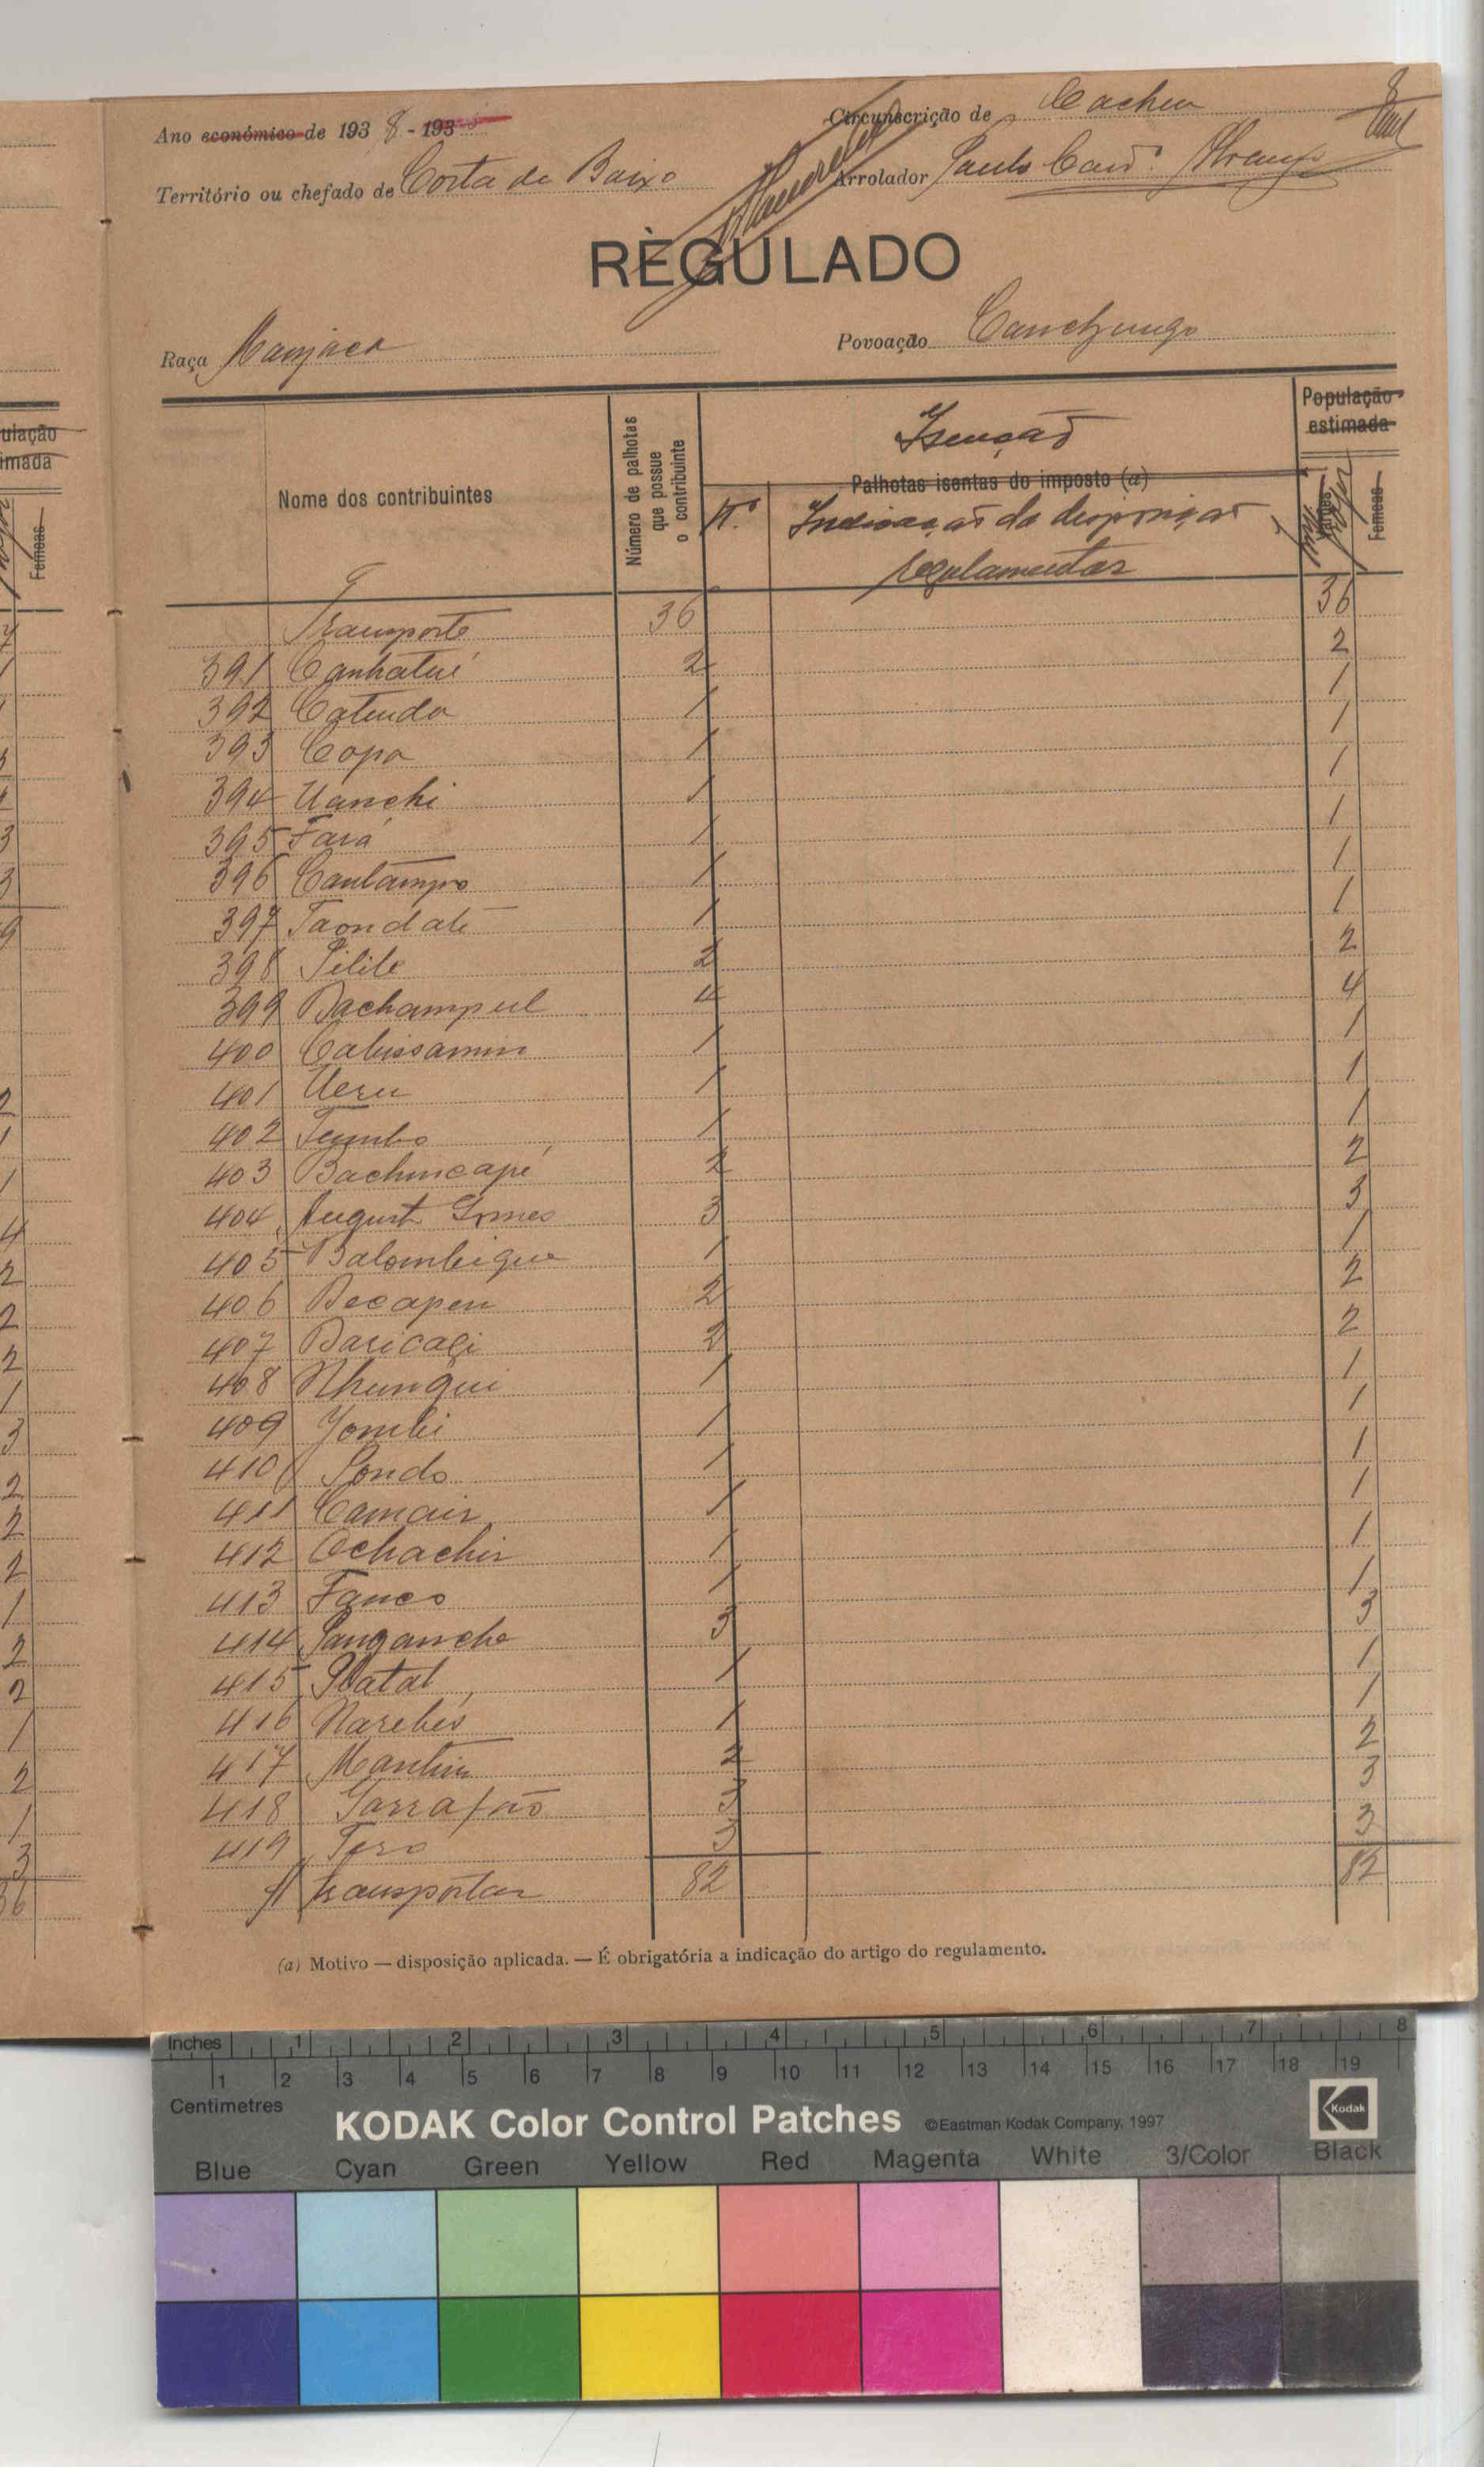 Ano económico de 1938 - 193
Circunscrição de Cacheu
8
Território ou chefado de Costa de Baixo
Arrolador Paulo
REGULADO
Raça Manjaca
Povoação Canchungo
População estimada
Isenção
Nome dos contribuintes
Número de palhotas que possue o contribuinte
Palhotas isentas do imposto (a)
N.º
Indicação da disposição
regulamentar
Varões
Femeas
Transporte 36 36
391 Canhatué 2 2
392 Catuda 1 1
393 Copa 1 1
394 Uanchi 1 1
395 Fará 1 1
396 Cantampo 1 1
397 Taondaté 1 1
398 Pilile 2 2
399 Bachampul 4 4
400 Cabissamin 1 1
401 Ueru 1 1
402 Tumbo 1 1
403 Bachucapé 2 2
404 August Gomes 3 3
405 Balombique 1 1
406 Becapen 2 2
407 Baricaçi 2 2
408 Nhunqui 1 1
409 Jombi 1 1
410 Pondo 1 1
411 Camair 1 1
412 Ochachir 1 1
413 Fanco 1 1
414 Panganche 3 3
415 Natal 1 1
416 Narebés 1 1
417 Mantim 2 2
418 Garrafão 3 3
419 Tero 3 3
A transportar 82 82
(a) Motivo — disposição aplicada. — É obrigatória a indicação do artigo do regulamento.
Inches 1 2 3 4 5 6 7 8
1 2 3 4 5 6 7 8 9 10 11 12 13 14 15 16 17 18 19
Centimetres
KODAK Color Control Patches ©Eastman Kodak Company, 1997
Kodak
Blue Cyan Green Yellow Red Magenta White 3/Color Black